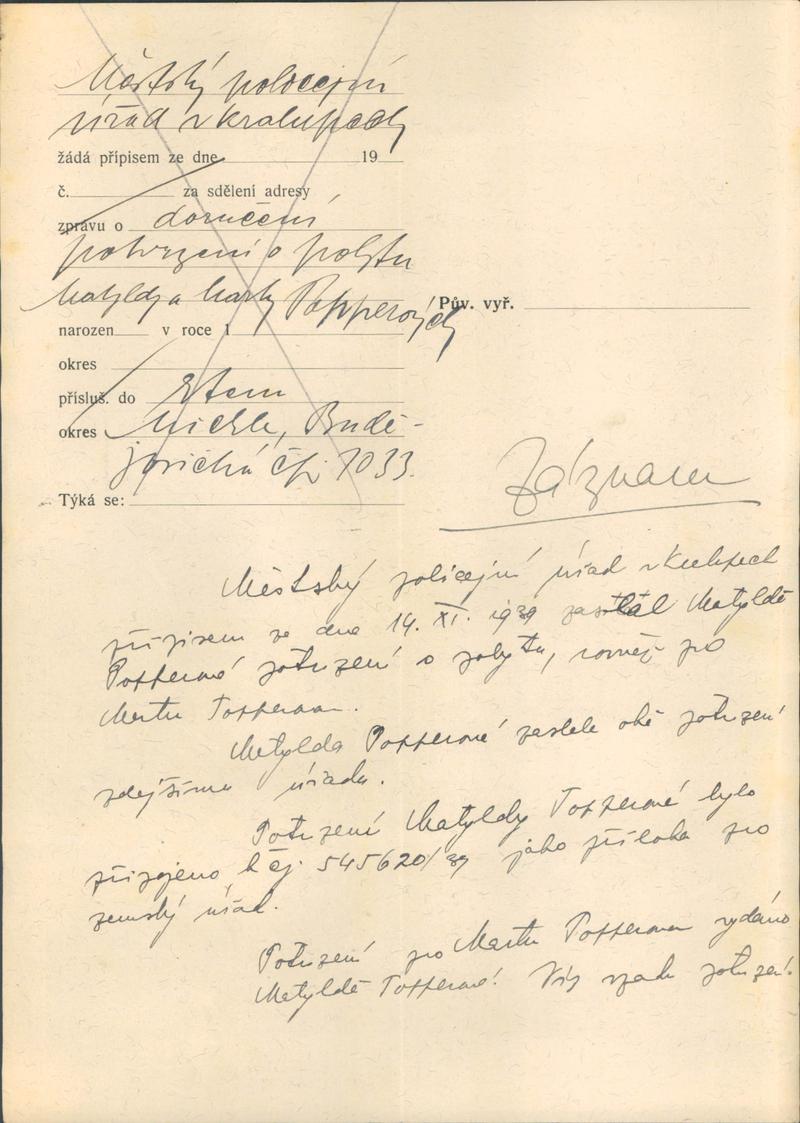 Městský policejní
úřad v Kralupech
žádá přípisem ze dne 19
č. za sdělení adresy
zprávu o doručení
potvrzení o pobytu
Matyldy a Marty Popperových
Pův. vyř.
narozen v roce 1
okres
přísluš. do
okres Michle, Budě-
jovická čp. 1033.
Týká se:
Záznam
Městský policejní úřad v Kralupech
přípisem ze dne 14. XI. 1939 zaslal Matyldě
Popperové potvrzení o pobytu, rovněž pro
Martu Popperovou.
Matylda Popperová zaslala obě potvrzení
zdejšímu úřadu.
Potvrzení Matyldy Popperové bylo
připojeno k čj. 545620/39 jako příloha pro
zemský úřad.
Potvrzení pro Martu Popperovou vydáno
Matyldě Popperové. Viz vzadu potvrzení.